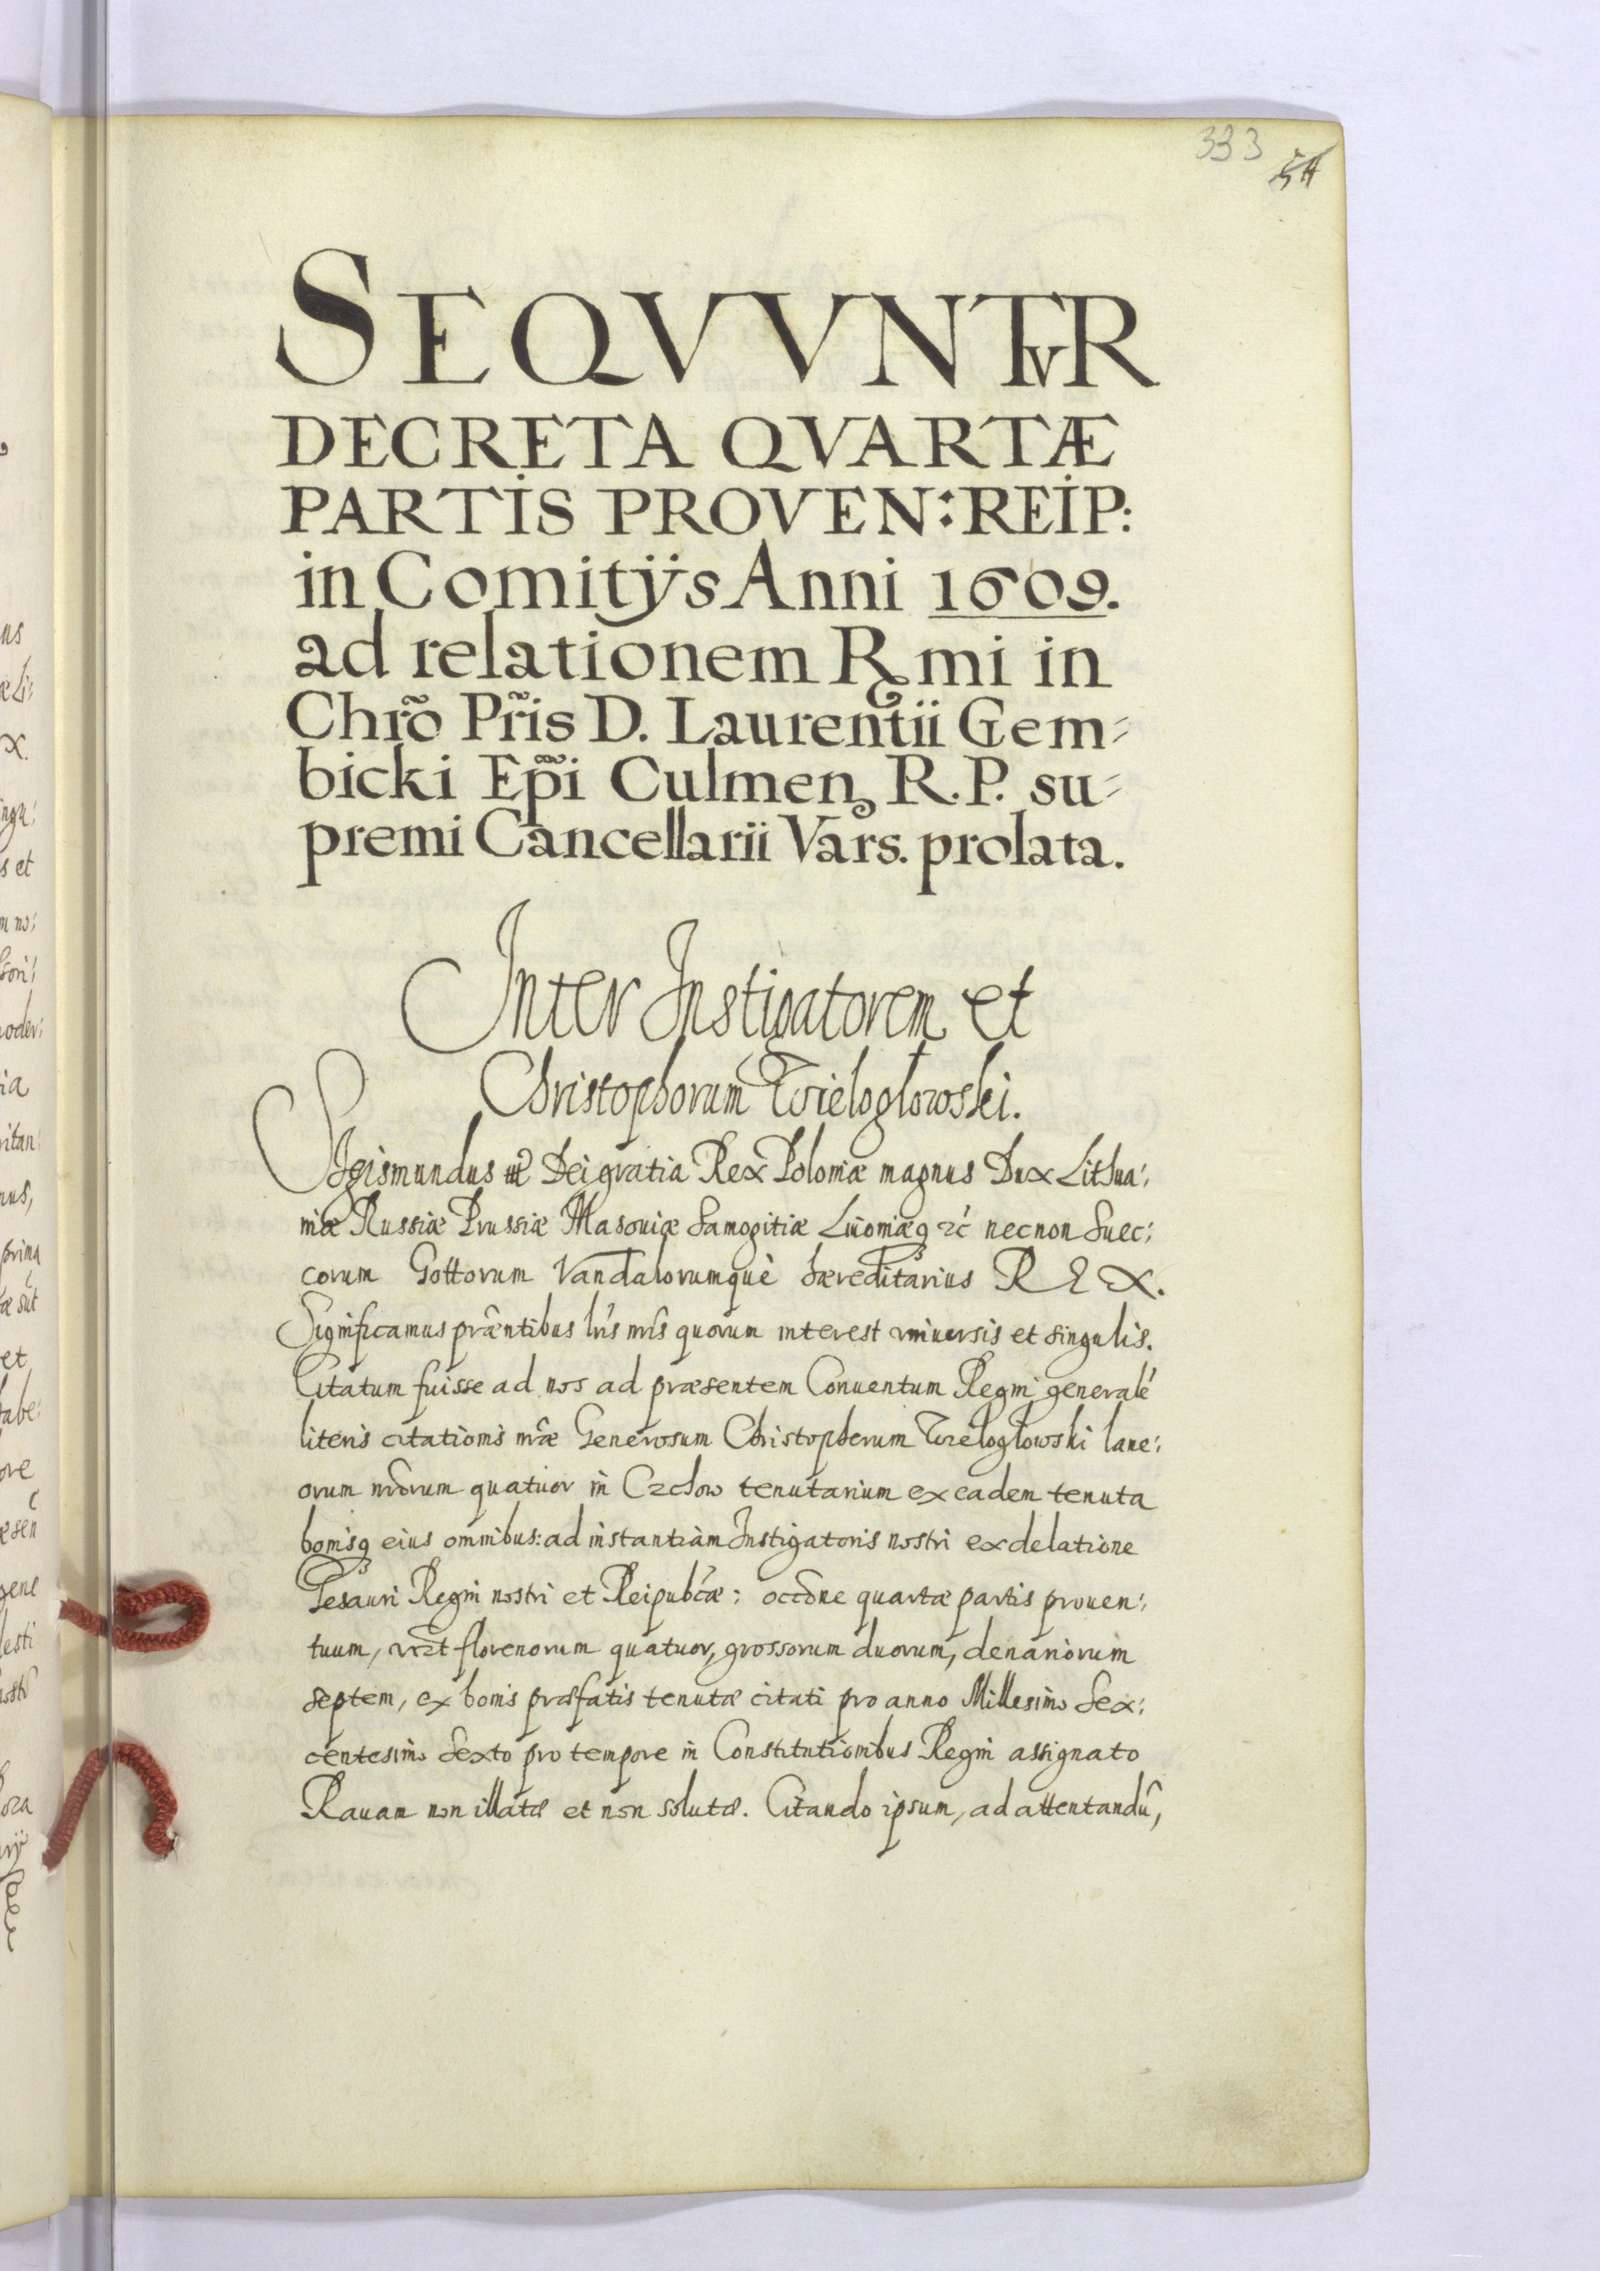 333
54
SEQVVNTVR
DECRETA QVARTÆ
PARTIS PROVEN: REIP:
in Comitijs Anni 1609.
ad relationem Rmi in
Chrõ Pr̃is D. Laurentii Gem-
bicki Ep̃i Culmen. R. P. su-
premi Cancellarii Vars. prolata.
Inter Instigatorem et
Christophorum Wieloglowski.
Sigismundus III Dei gratia Rex Poloniæ magnus Dux Lithua:
niæ Russiæ Prussiæ Masoviæ Samogitiæ Livoniæq zć necnon Suec:
corum Gottorum Vandalorumquè hæreditarius REX.
Significamus præntibus lrĩs nrĩs quorum interest vniuersis et singulis.
Citatum fuisse ad nos ad præsentem Conuentum Regni generalé
literis citationis nræ Generosum Christopherum Wieloglowski lane:
orum nrõrum quatuor in Czchow tenutarium ex eadem tenuta
bonisq eius omnibus: ad instantiam Instigatoris nostri ex delatione
Tesauri Regni nostri et Reipubcæ: occõne quartæ partis prouen:
tuum, vczt florenorum quatuor, grossorum duorum, denariorum
septem, ex bonis præfatis tenutæ citati pro anno Millesimo Sex:
centesimo Sexto pro tempore in Constitutionibus Regni assignato
Rauam non illatæ et non solutæ. Citando ipsum, ad attentandũ,